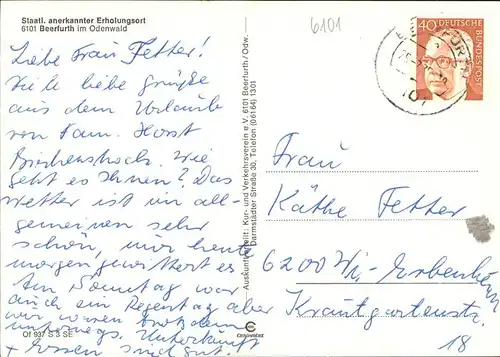 Staatl. anerkannter Erholungsort
6101 Beerfurth im Odenwald
6101
Liebe Frau Fetter!
Viele liebe Grüße
aus dem Urlaub
von Fam. Horst
Wie
geht es Ihnen? Das
Wetter ist im all-
gemeinen sehr
schön, nur heute
morgen gewittert es
Am Sonntag war
auch ein Regentag aber
wir waren trotzdem
unterwegs. Unterkunft
+ Essen sind gut.
Of 937 S 3 SE
Auskunft erteilt: Kur- und Verkehrsverein e.V. 6101 Beerfurth/Odw.
Darmstädter Straße 30, Telefon (06164) 1301
40 DEUTSCHE
BUNDESPOST
Frau
Käthe Fetter
6200 Wi.-Erbenheim
Krautgartenstr.
18